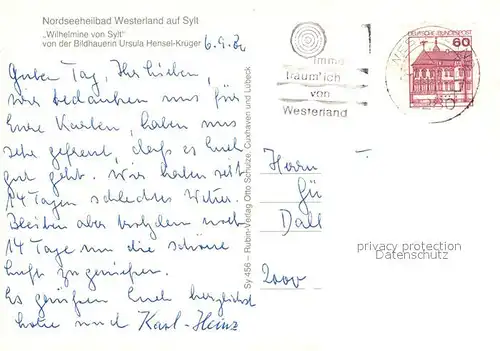 Nordseeheilbad Westerland auf Sylt
„Wilhelmine von Sylt"
von der Bildhauerin Ursula Hensel-Krüger
6.9.82
Guten Tag, Ihr Lieben,
wir bedanken uns für
Eure Karten, haben uns
sehr gefreut, daß es Euch
gut geht. Wir haben seit
14 Tagen schlechtes Wetter.
Bleiben aber trotzdem noch
14 Tage um die schöne
Luft zu genießen.
Es grüßen Euch herzlichst
und Karl-Heinz
Sy 456 – Rubin-Verlag Otto Schulze, Cuxhaven und Lübeck
Imme
träum' ich
von
Westerland
DEUTSCHE BUNDESPOST
60
Herrn
Gü
Dall
2000
privacy protection
Datenschutz